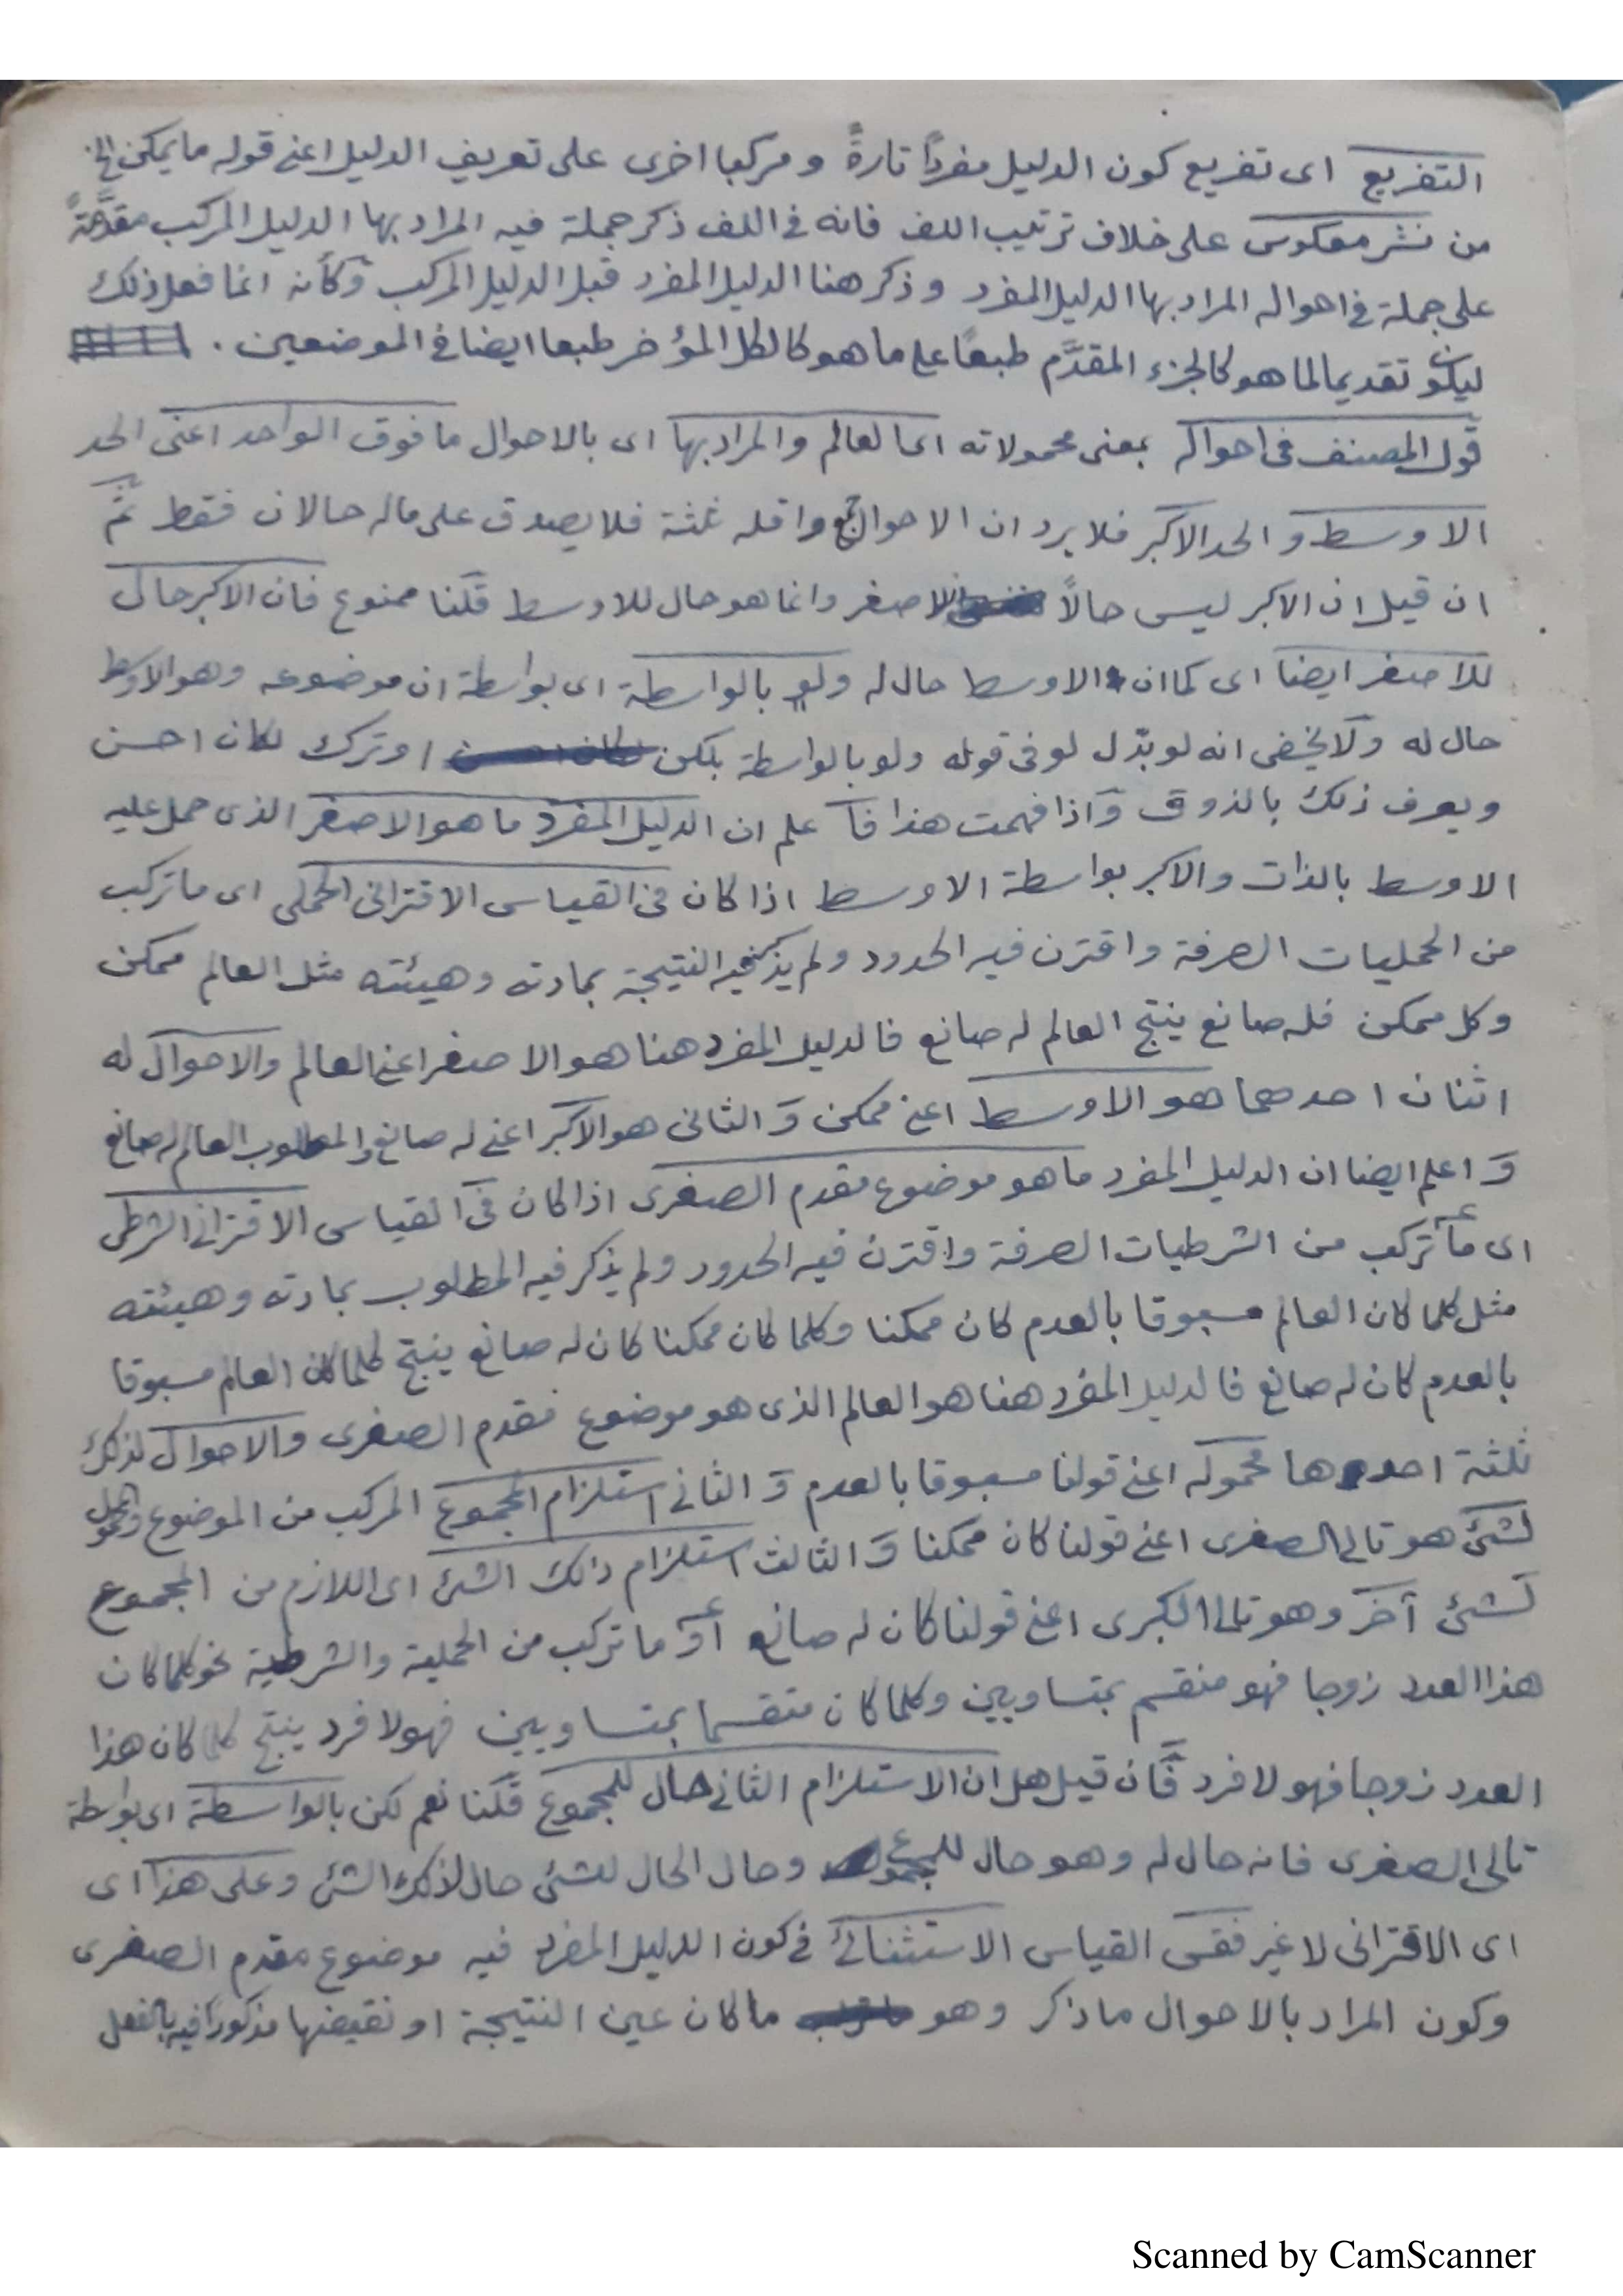 التفريع اى تفريع كون الدليل مفرداً تارةً و مركبا اخرى على تعريف الدليل اعنى قوله ما يمكن الخ
من نشر معكوس على خلاف ترتيب اللف فانه فى اللف ذكر جملة فيه المراد بها الدليل المركب مقدَّمةً
على جملة فى احواله المراد بها الدليل المفرد و ذكر هنا الدليل المفرد قبل الدليل المركب وكأنه انما فعل ذلك
ليكون تقديما لما هو كالجزء المقدَّم طبعاً على ما هو كالكل المؤخر طبعا ايضا فى الموضعين .
قول المصنف فى احواله بمعنى محمولاته اى العالم والمراد بها اى بالاحوال ما فوق الواحد اعنى الحد
الاوسط و الحد الاكبر فلا يرد ان الاحوال جمع واقله ثلثة فلا يصدق على ماله حالان فقط ثم
ان قيل ان الاكبر ليس حالاً للاصغر وانما هو حال للاوسط قلنا ممنوع فان الاكبر حال
للاصغر ايضا اى كما ان الاوسط حال له ولو بالواسطة اى بواسطة ان موضوعه وهو الاوسط
حال له ولا يخفى انه لو بدّل لو فى قوله ولو بالواسطة بلكن او ترك لكان احسن
ويعرف ذلك بالذوق واذا فهمت هذا فا علم ان الدليل المفرد ما هو الاصغر الذى حمل عليه
الاوسط بالذات والاكبر بواسطة الاوسط اذا كان فى القياس الاقترانى الحملى اى ما تركب
من الحمليات الصرفة واقترن فيه الحدود ولم يذكر فيه النتيجة بمادته وهيئته مثل العالم ممكن
وكل ممكن فله صانع ينتج العالم له صانع فالدليل المفرد هنا هو الاصغر اعنى العالم والاحوال له
اثنان احدهما هو الاوسط اعنى ممكن والثانى هو الاكبر اعنى له صانع والمطلوب العالم له صانع
واعلم ايضا ان الدليل المفرد ما هو موضوع مقدم الصغرى اذا كان فى القياس الاقترانى الشرطى
اى ما تركب من الشرطيات الصرفة واقترن فيه الحدود ولم يذكر فيه المطلوب بمادته وهيئته
مثل كلما كان العالم مسبوقا بالعدم كان ممكنا وكلما كان ممكنا كان له صانع ينتج كلما كان العالم مسبوقا
بالعدم كان له صانع فالدليل المفرد هنا هو العالم الذى هو موضوع مقدم الصغرى والاحوال لذلك
ثلثة احدها محموله اعنى قولنا مسبوقا بالعدم والثانى استلزام المجموع المركب من الموضوع والمحمول
لشئ هو تالى الصغرى اعنى قولنا كان ممكنا والثالث استلزام ذلك الشئ اى اللازم من المجموع
لشئ آخر وهو تالى الكبرى اعنى قولنا كان له صانع أو ما تركب من الحملية والشرطية نحو كلما كان
هذا العدد زوجا فهو منقسم بمتساويين وكلما كان منقسما بمتساويين فهو لا فرد ينتج كلما كان هذا
العدد زوجا فهو لا فرد فان قيل هل ان الاستلزام الثانى حال للمجموع قلنا نعم لكن بالواسطة اى بواسطة
تالى الصغرى فانه حال له وهو حال للمجموع وحال الحال للشئ حال لذلك الشئ وعلى هذا اى
اى الاقترانى لا غير فقس القياس الاستثنائى فى كون الدليل المفرد فيه موضوع مقدم الصغرى
وكون المراد بالاحوال ما ذكر وهو ما كان عين النتيجة او نقيضها مذكورا فيه بالفعل
Scanned by CamScanner